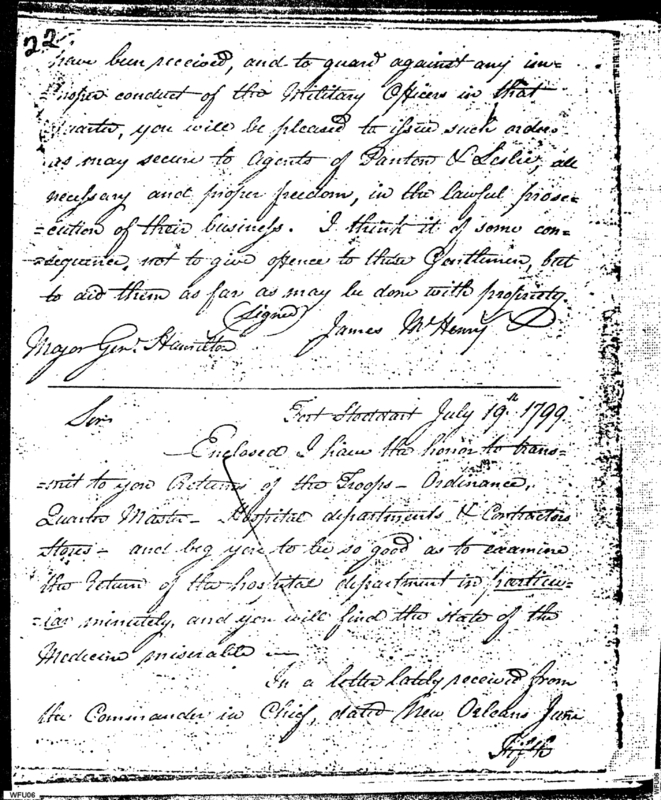 22
have been received, and to guard against any im=
=proper conduct of the Military Officers in that
quarter, you will be pleased to issue such orders
as may secure to Agents of Panton & Leslie, all
necessary and proper freedom, in the lawful prose=
=cution of their business. I think it of some con=
=sequence, not to give offence to these Gentlemen, but
to aid them as far as may be done with propriety.
(Signed)
James McHenry
Major Genl. Hamilton
Fort Stoddart July 19th 1799.
Sir
Enclosed I have the honor to trans=
=mit to you Returns of the Troops – Ordinance,
Quarter Master – Hospital departments & Contractors
Stores – and beg you to be so good as to examine
the Return of the hospital department in particu=
=lar minutely, and you will find the state of the
Medicine miserable —
In a letter lately received from
the Commander in Chief, dated New Orleans June
Fifth
WFU06
WFU06